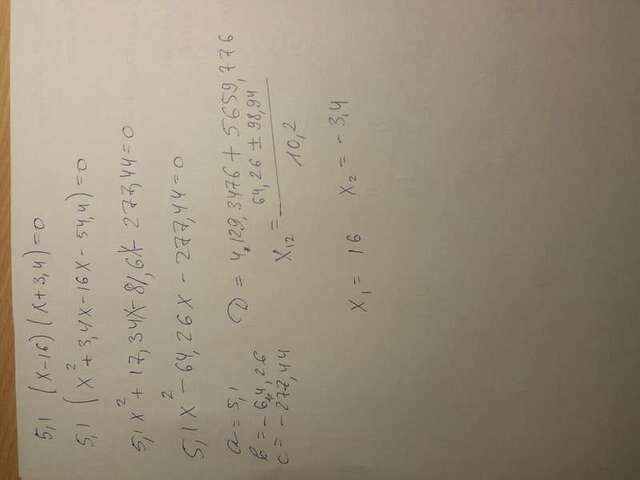 5,1 (x-16)(x+3,4)=0
5,1 (x²+3,4x-16x-54,4)=0
5,1x²+17,34x-81,6x-277,44=0
5,1x²-64,26x-277,44=0
a=5,1
b=-64,26
c=-277,44
D=4129,3476+5659,776
x₁₂=(64,26±98,94)/10,2
x₁=16 x₂=-3,4